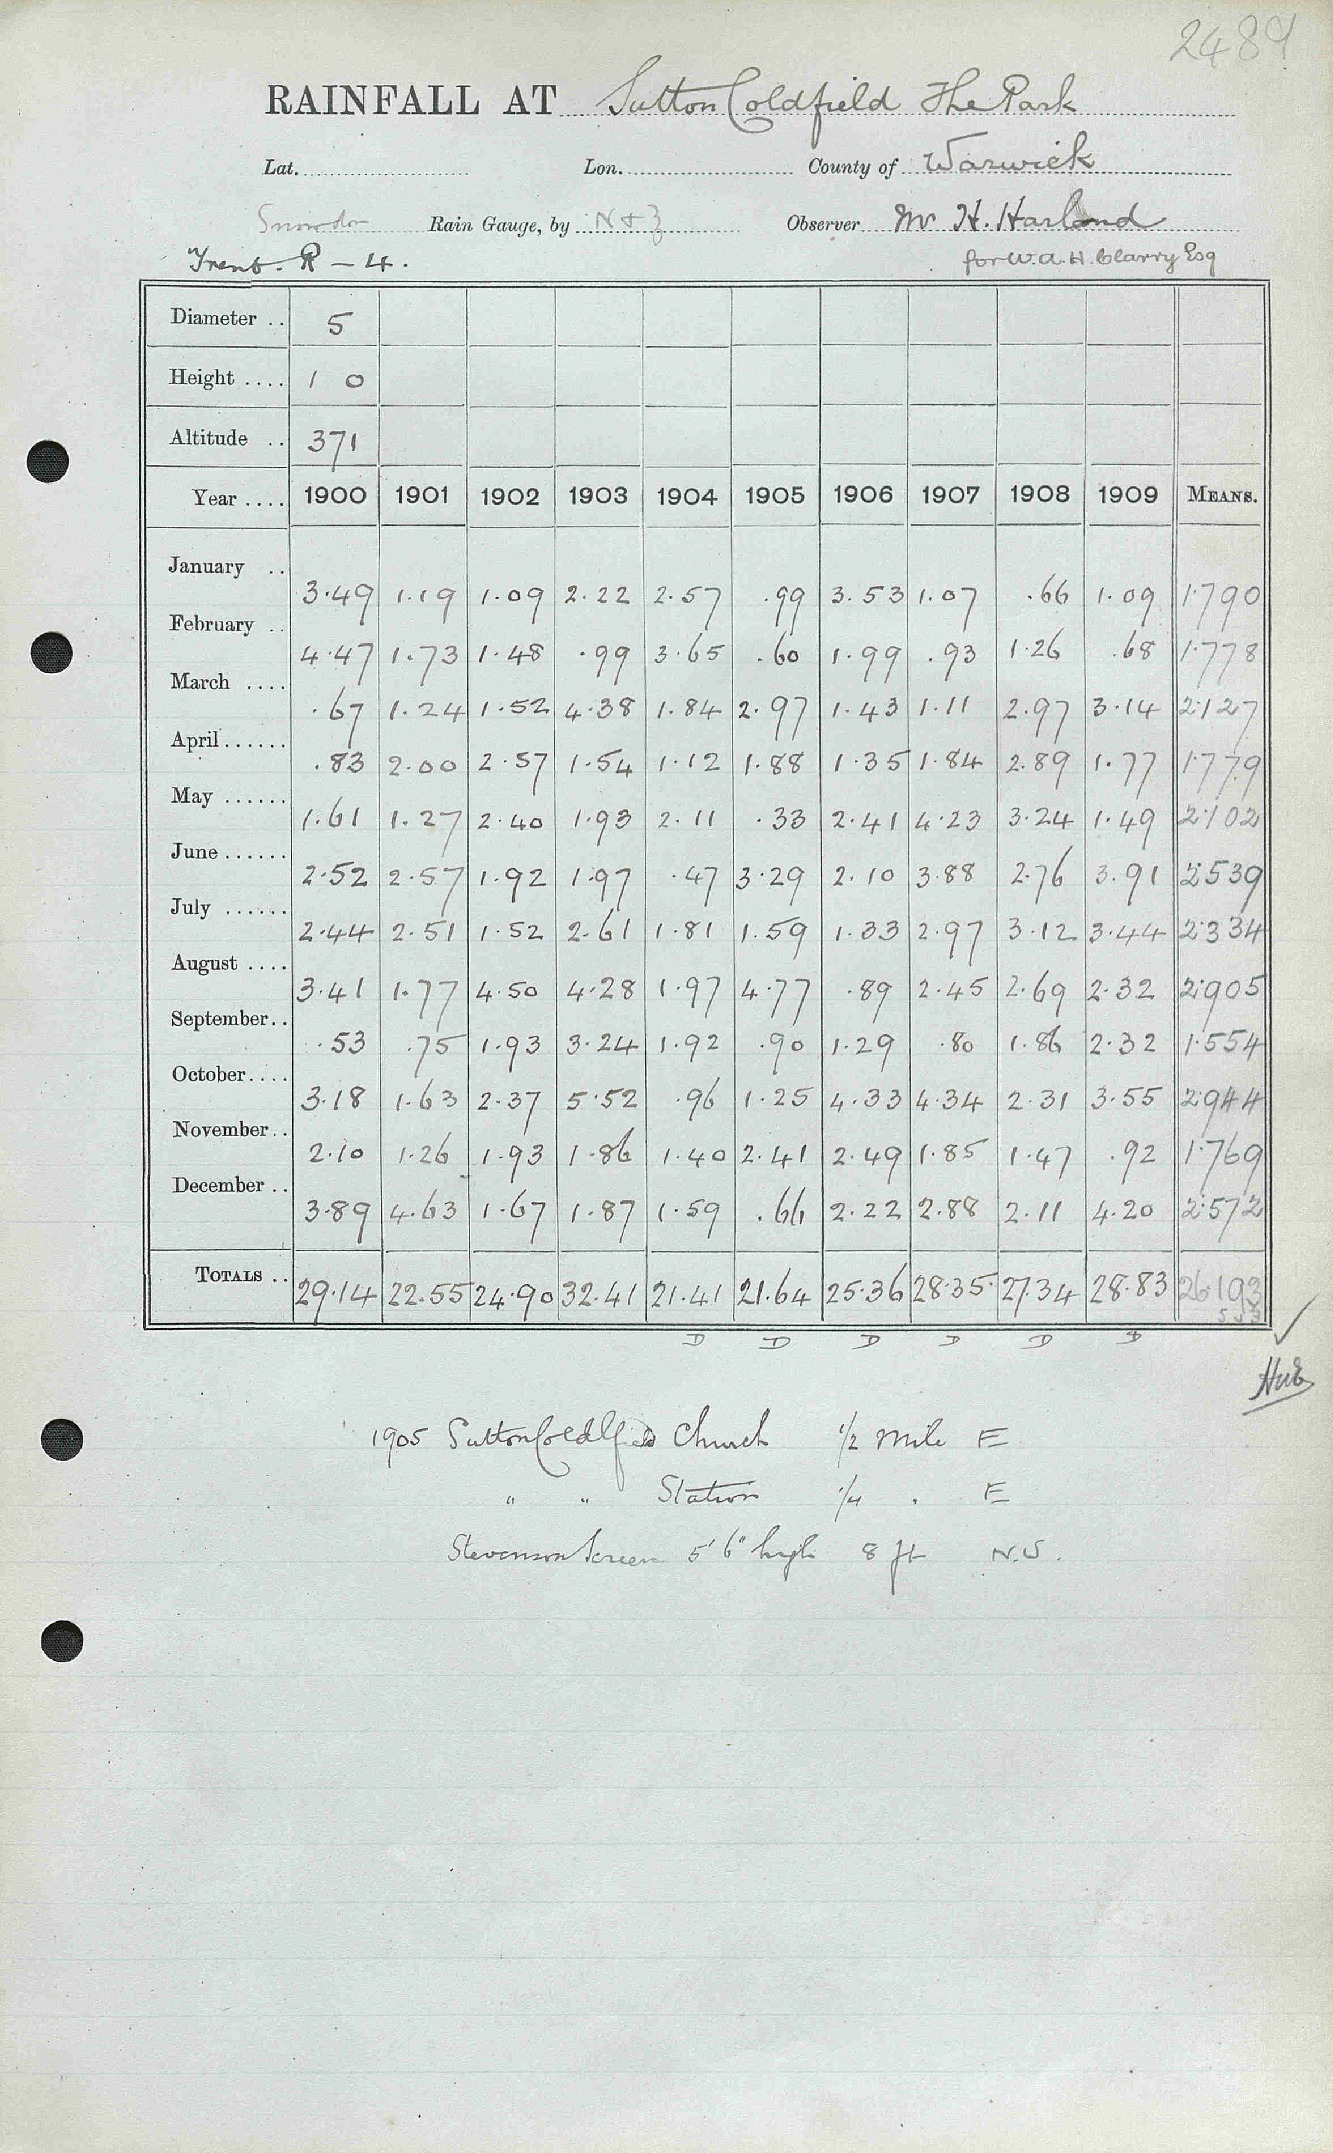 2489
RAINFALL AT Sutton Coldfield The Park
Lat. Lon. County of Warwick
Snowdon Rain Gauge, by N & Z Observer Mr H. Harland
Trent. R - 4. for W.A.H. Clarry Esq
Diameter .. 5
Height .... 1 0
Altitude .. 371
Year .... 1900 1901 1902 1903 1904 1905 1906 1907 1908 1909 MEANS.
January .. 3.49 1.19 1.09 2.22 2.57 .99 3.53 1.07 .66 1.09 1.790
February .. 4.47 1.73 1.48 .99 3.65 .60 1.99 .93 1.26 .68 1.778
March .... .67 1.24 1.52 4.38 1.84 2.97 1.43 1.11 2.97 3.14 2.127
April ...... .83 2.00 2.57 1.54 1.12 1.88 1.35 1.84 2.89 1.77 1.779
May ...... 1.61 1.27 2.40 1.93 2.11 .33 2.41 4.23 3.24 1.49 2.102
June ...... 2.52 2.57 1.92 1.97 .47 3.29 2.10 3.88 2.76 3.91 2.539
July ...... 2.44 2.51 1.52 2.61 1.81 1.59 1.33 2.97 3.12 3.44 2.334
August .... 3.41 1.77 4.50 4.28 1.97 4.77 .89 2.45 2.69 2.32 2.905
September.. .53 .75 1.93 3.24 1.92 .90 1.29 .80 1.86 2.32 1.554
October.... 3.18 1.63 2.37 5.52 .96 1.25 4.33 4.34 2.31 3.55 2.944
November.. 2.10 1.26 1.93 1.86 1.40 2.41 2.49 1.85 1.47 .92 1.769
December .. 3.89 4.63 1.67 1.87 1.59 .66 2.22 2.88 2.11 4.20 2.572
TOTALS .. 29.14 22.55 24.90 32.41 21.41 21.64 25.36 28.35 27.34 28.83 26.193
D D D D D D
1905 Sutton Coldfield Church 1/2 mile E
" " Station 1/4 . E
Stevenson Screen 5' 6" high 8 ft N.S.